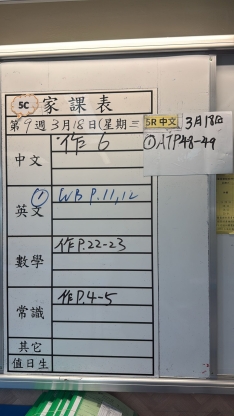 5C 家課表
第9週3月18日(星期三
中文 作6
英文 ① WB P.11,12
數學 作P.22-23
常識 作P.4-5
其它
值日生
5R 中文 3月18日
① ATP48-49